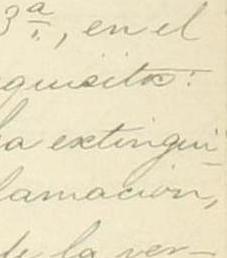 3ª, en el
quisito:
a extingui-
lamación,
de la ver-